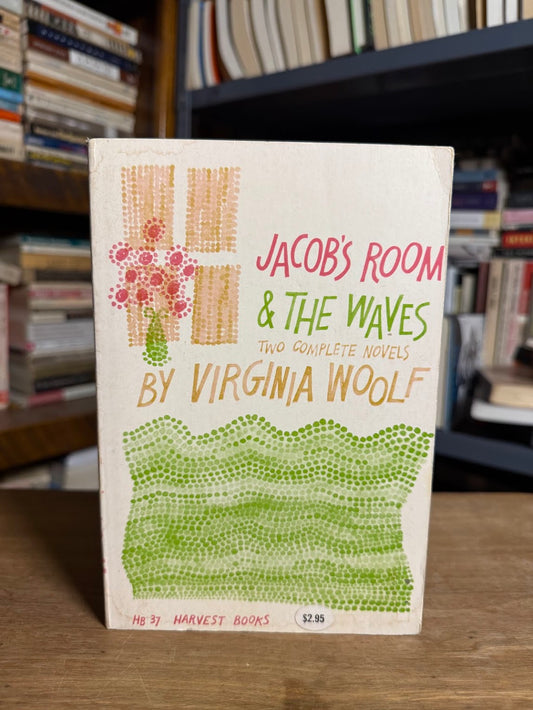 JACOB'S ROOM
& THE WAVES
TWO COMPLETE NOVELS
BY VIRGINIA WOOLF
HB 37 HARVEST BOOKS
$2.95